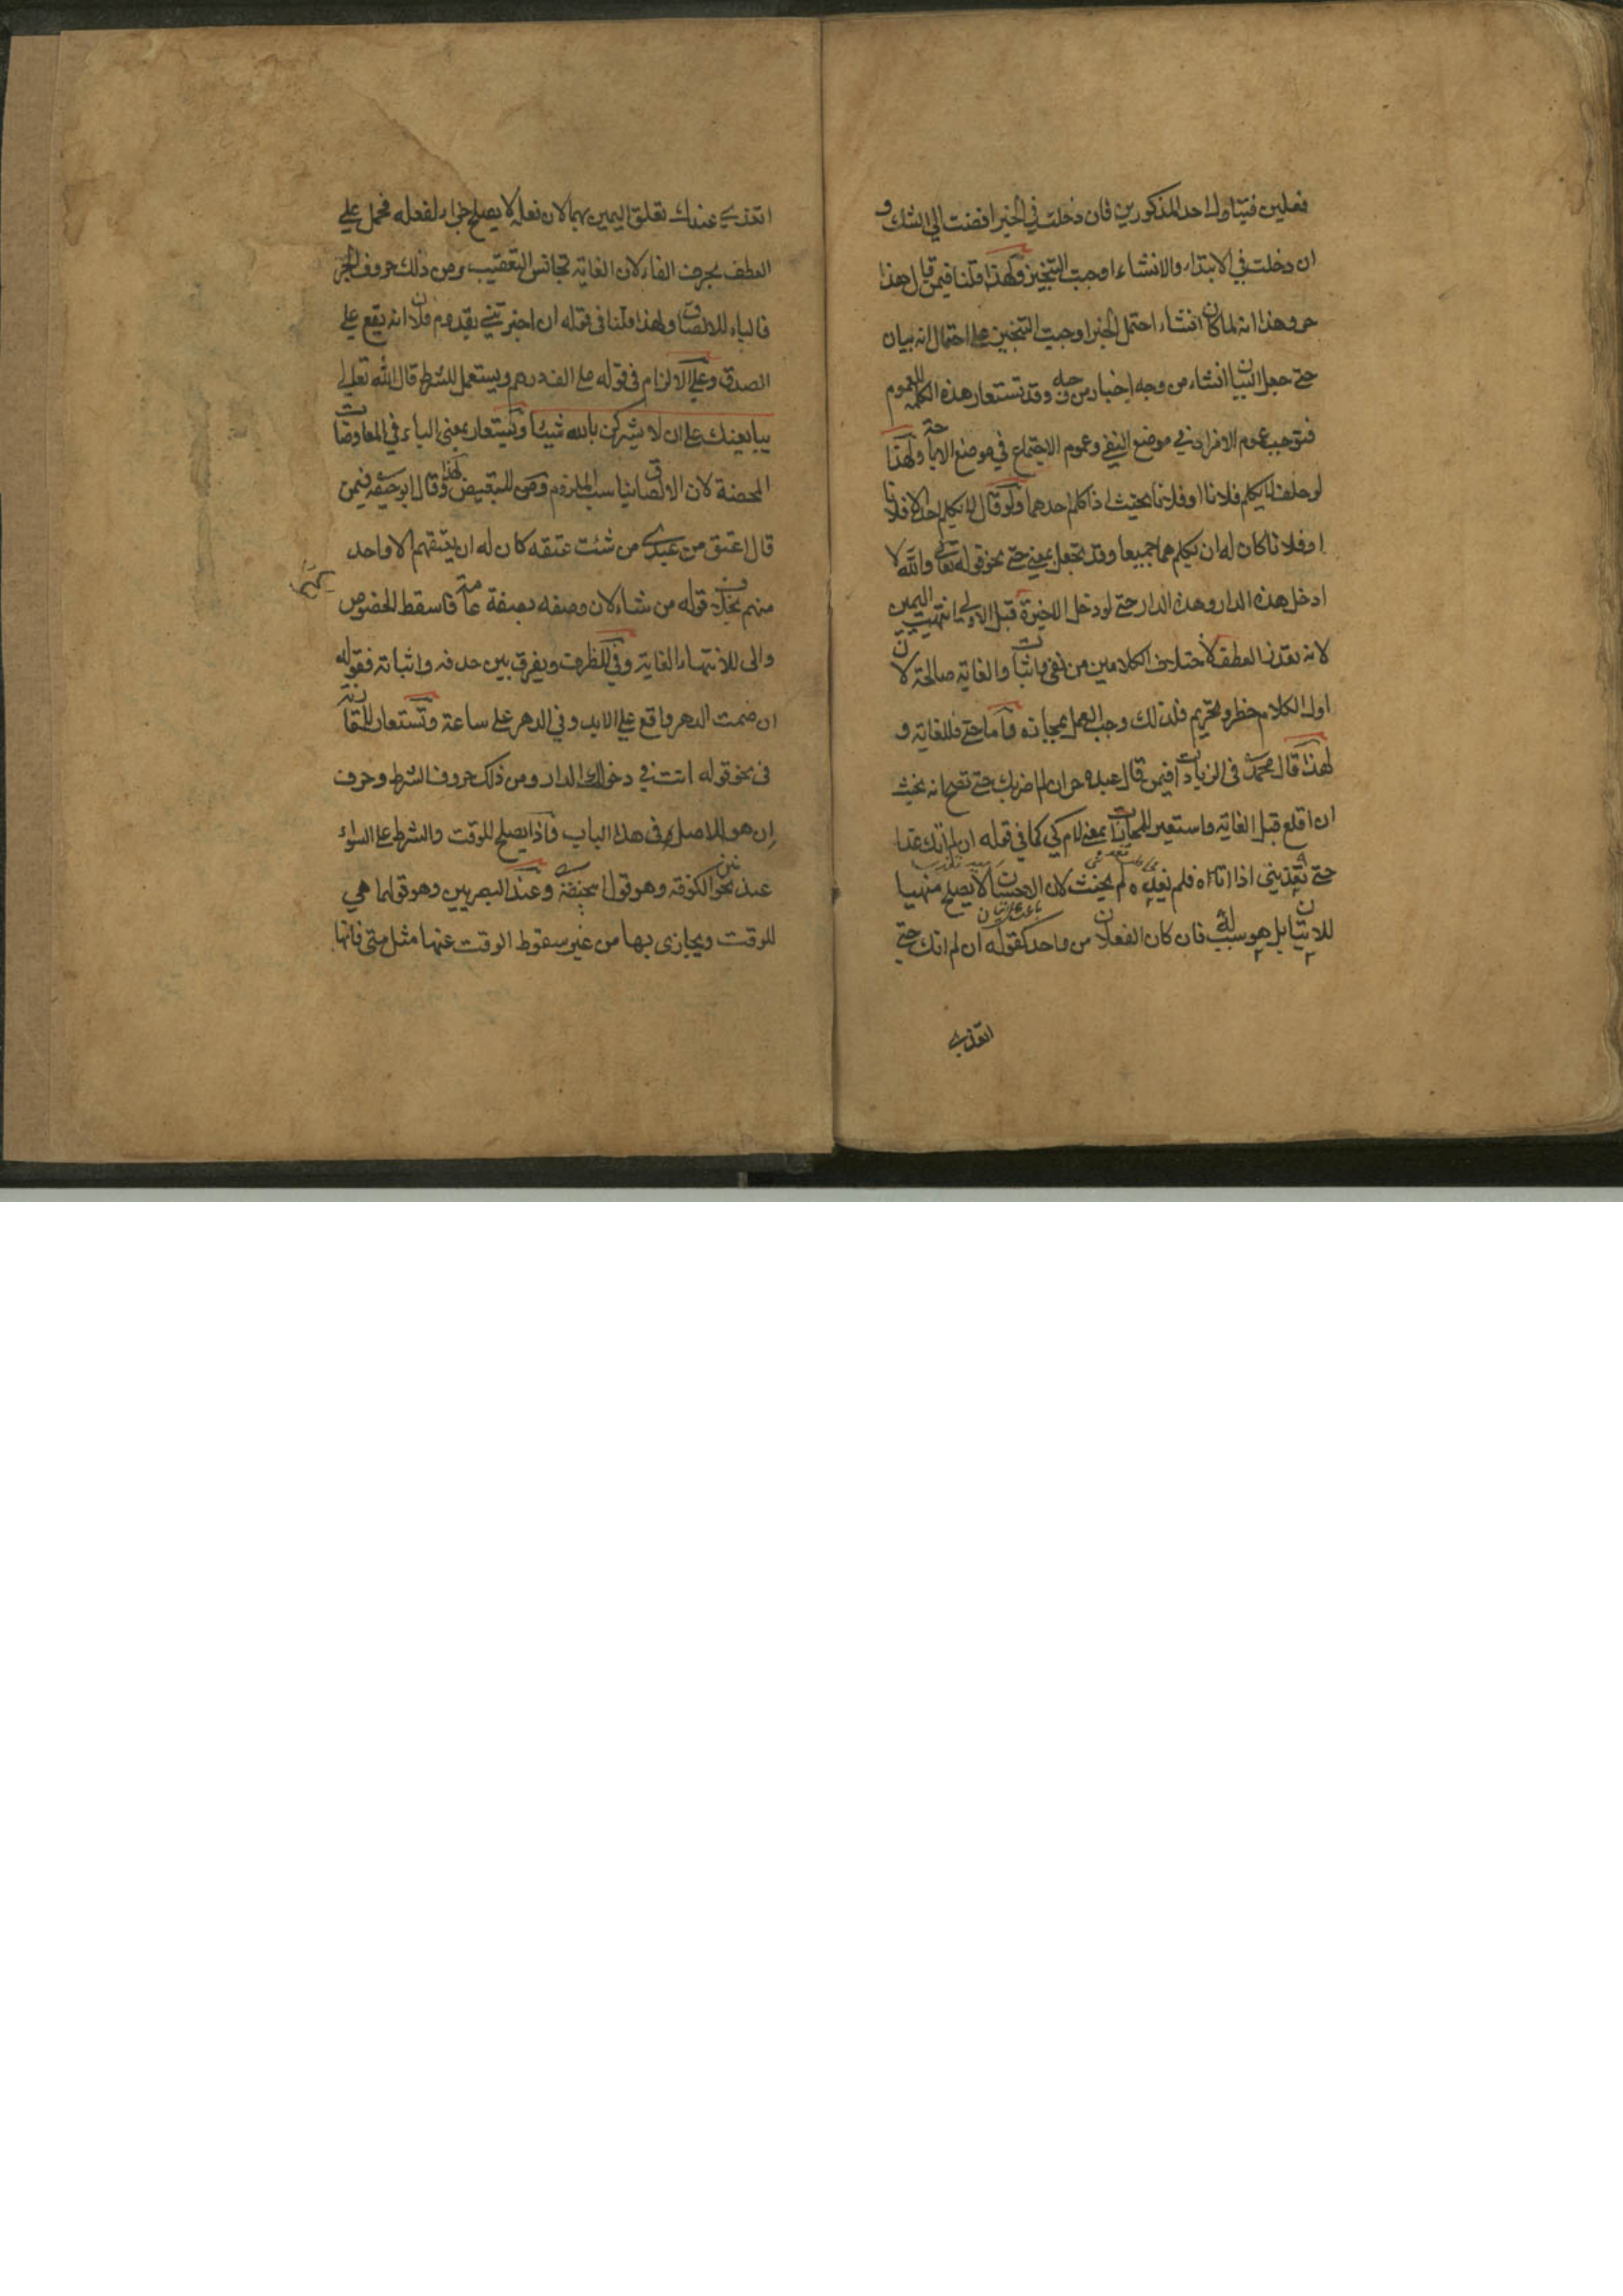 فعلين فيتناول احد المذكورين فان دخلت في الخبر افضت الي الشك و
ان دخلت في الابتداء والانشاء اوجبت التخيير ولهذا قلنا فيمن قال هذا
حر وهذا انه لما كان انشاء احتمل الخبر اوجبت التخيير على احتمال انه بيان
حتى جعل البيان انشاء من وجه اخبار من وجه وقد تستعار هذه الكلمة للعموم
فتوجب عموم الافراد في موضع النفي وعموم الاجتماع في موضع الاباحة ولهذا
لو حلف لا يكلم فلانا او فلانا يحنث اذا كلم احدهما ولو قال لا يكلم احدا الا فلانا
او فلانا كان له ان يكلمهما جميعا وقد تجعل بمعنى حتى نحو قوله تعالى والله لا
ادخل هذه الدار وهذه الدار حتى لو دخل الاخيرة قبل الاولي انتهيت اليمين
لانه تعذر العطف لاختلاف الكلامين من نفي واثبات والغاية صالحة لان
اول الكلام حظر وتحريم فلذلك وجب العمل بمجازه واما حتى فللغاية و
لهذا قال محمد في الزيادات فيمن قال عبده حر ان لم اضربك حتى تصيح انه يحنث
ان اقلع قبل الغاية واستعير للمجازات بمعنى لام كي كما في قوله ان لم اتك غدا
حتى تغديني اذا اتاه فلم يغده لم يحنث لان الاحسان لا يصلح منهيا
للاتيان بل هو سبب له فان كان الفعلان من واحد كقوله ان لم اتك حتى
اتغدى
اتغدي عندك تعلق اليمين بهما لان فعله لا يصلح جزاء لفعله فحمل علي
العطف بحرف الفاء لان الغاية تجانس التعقيب ومن ذلك حروف الجر
فالباء للالصاق ولهذا قلنا في قوله ان اخبرتني بقدوم فلان انه يقع علي
الصدق وعلي الالزام في قوله علي الف درهم ويستعمل للشرط قال الله تعالي
يبايعنك على ان لا يشركن بالله شيئا وتستعار بمعنى الباء في المعاوضات
المحضة لان الالصاق يناسب اللزوم ومن للتبعيض ولهذا قال ابو حنيفة فيمن
قال اعتق من عبيدي من شئت عتقه كان له ان يعتقهم الا واحد
منهم بخلاف قوله من شاء لان وصفه بصفة عامة فاسقط الخصوص
والى لانتهاء الغاية وفي للظرف ويفرق بين حذفه واثباته فقوله
ان صمت الدهر واقع علي الابد وفي الدهر على ساعة وتستعار للمقارنة
في نحو قوله انت في دخولك الدار ومن ذلك حروف الشرط وحرف
ان هو الاصل في هذا الباب واذا يصلح للوقت والشرط على السواء
عند نحويين الكوفة وهو قول ابيحنيفة وعند البصريين وهو قولهما هي
للوقت ويجازى بها من غير سقوط الوقت عنها مثل متى فانها